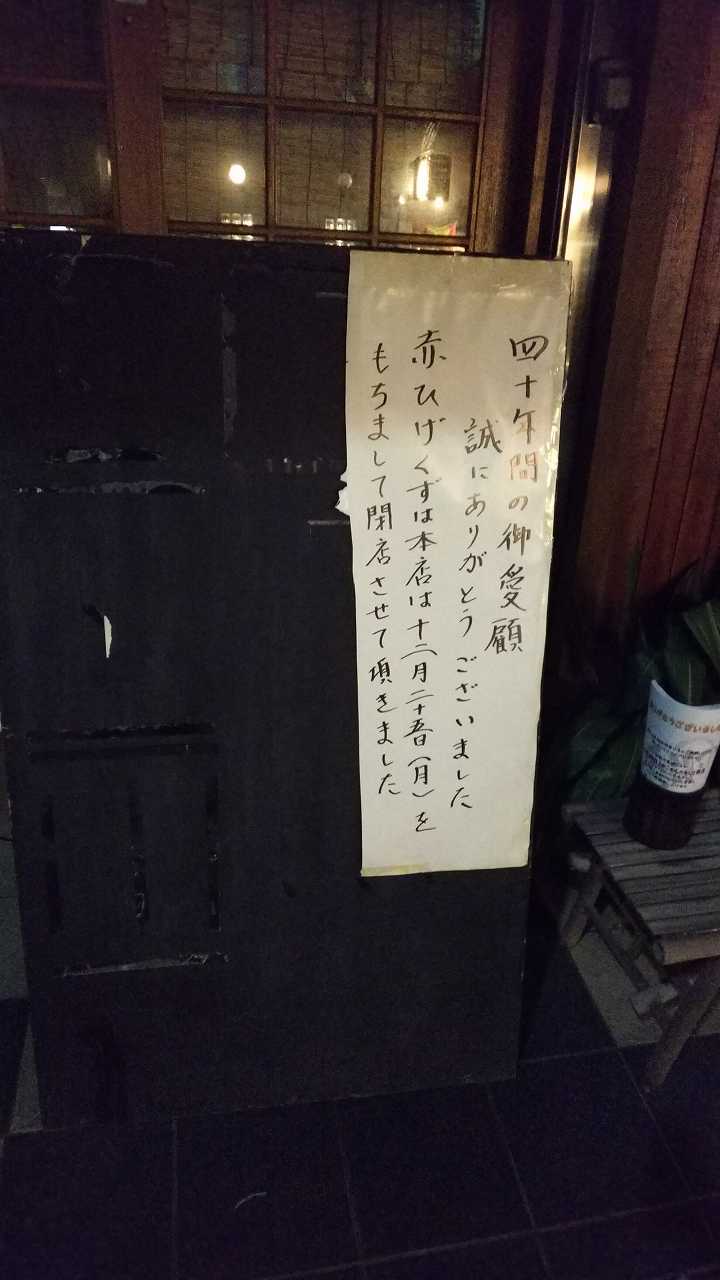 四十年間の御愛顧
誠にありがとうございました
赤ひげくずは本店は十二月二十五日(月)を
もちまして閉店させて頂きました
ありがとうございました